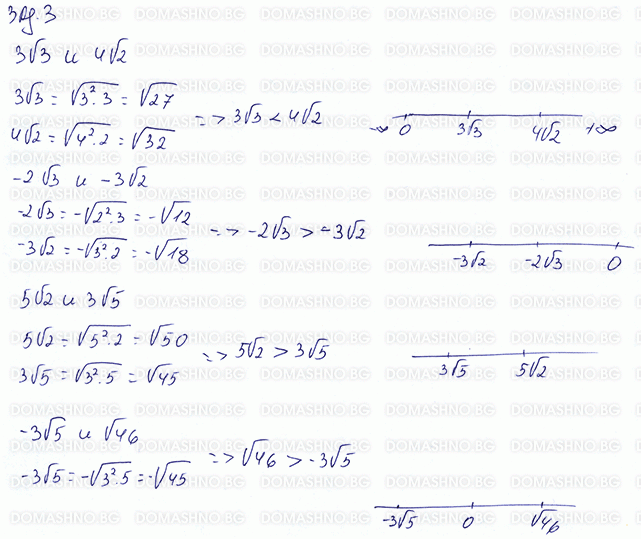 зад.3
3√3 и 4√2
3√3 = √3².3 = √27
4√2 = √4².2 = √32
=> 3√3 < 4√2
-∞ 0 3√3 4√2 +∞
-2√3 и -3√2
-2√3 = -√2².3 = -√12
-3√2 = -√3².2 = -√18
=> -2√3 > -3√2
-3√2 -2√3 0
5√2 и 3√5
5√2 = √5².2 = √50
3√5 = √3².5 = √45
=> 5√2 > 3√5
3√5 5√2
-3√5 и √46
-3√5 = -√3².5 = -√45
=> √46 > -3√5
-3√5 0 √46
DOMASHNO.BG